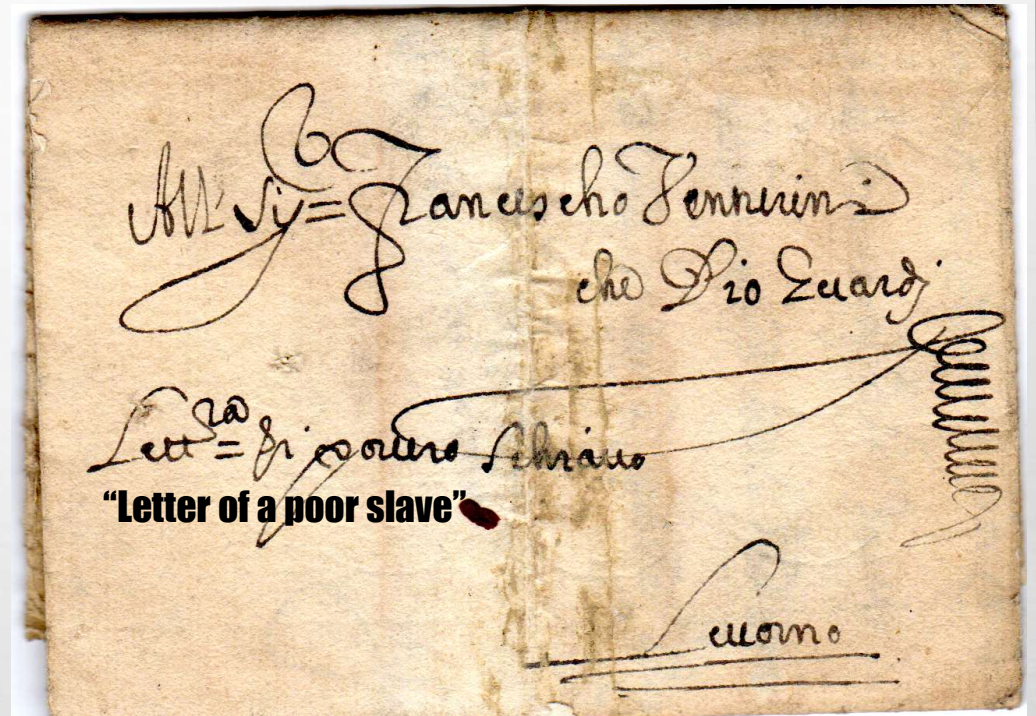 All' Sig= Francescho Vennurini
che Dio Guardj
Lettra= di povero Schiavo
“Letter of a poor slave”
Livorno